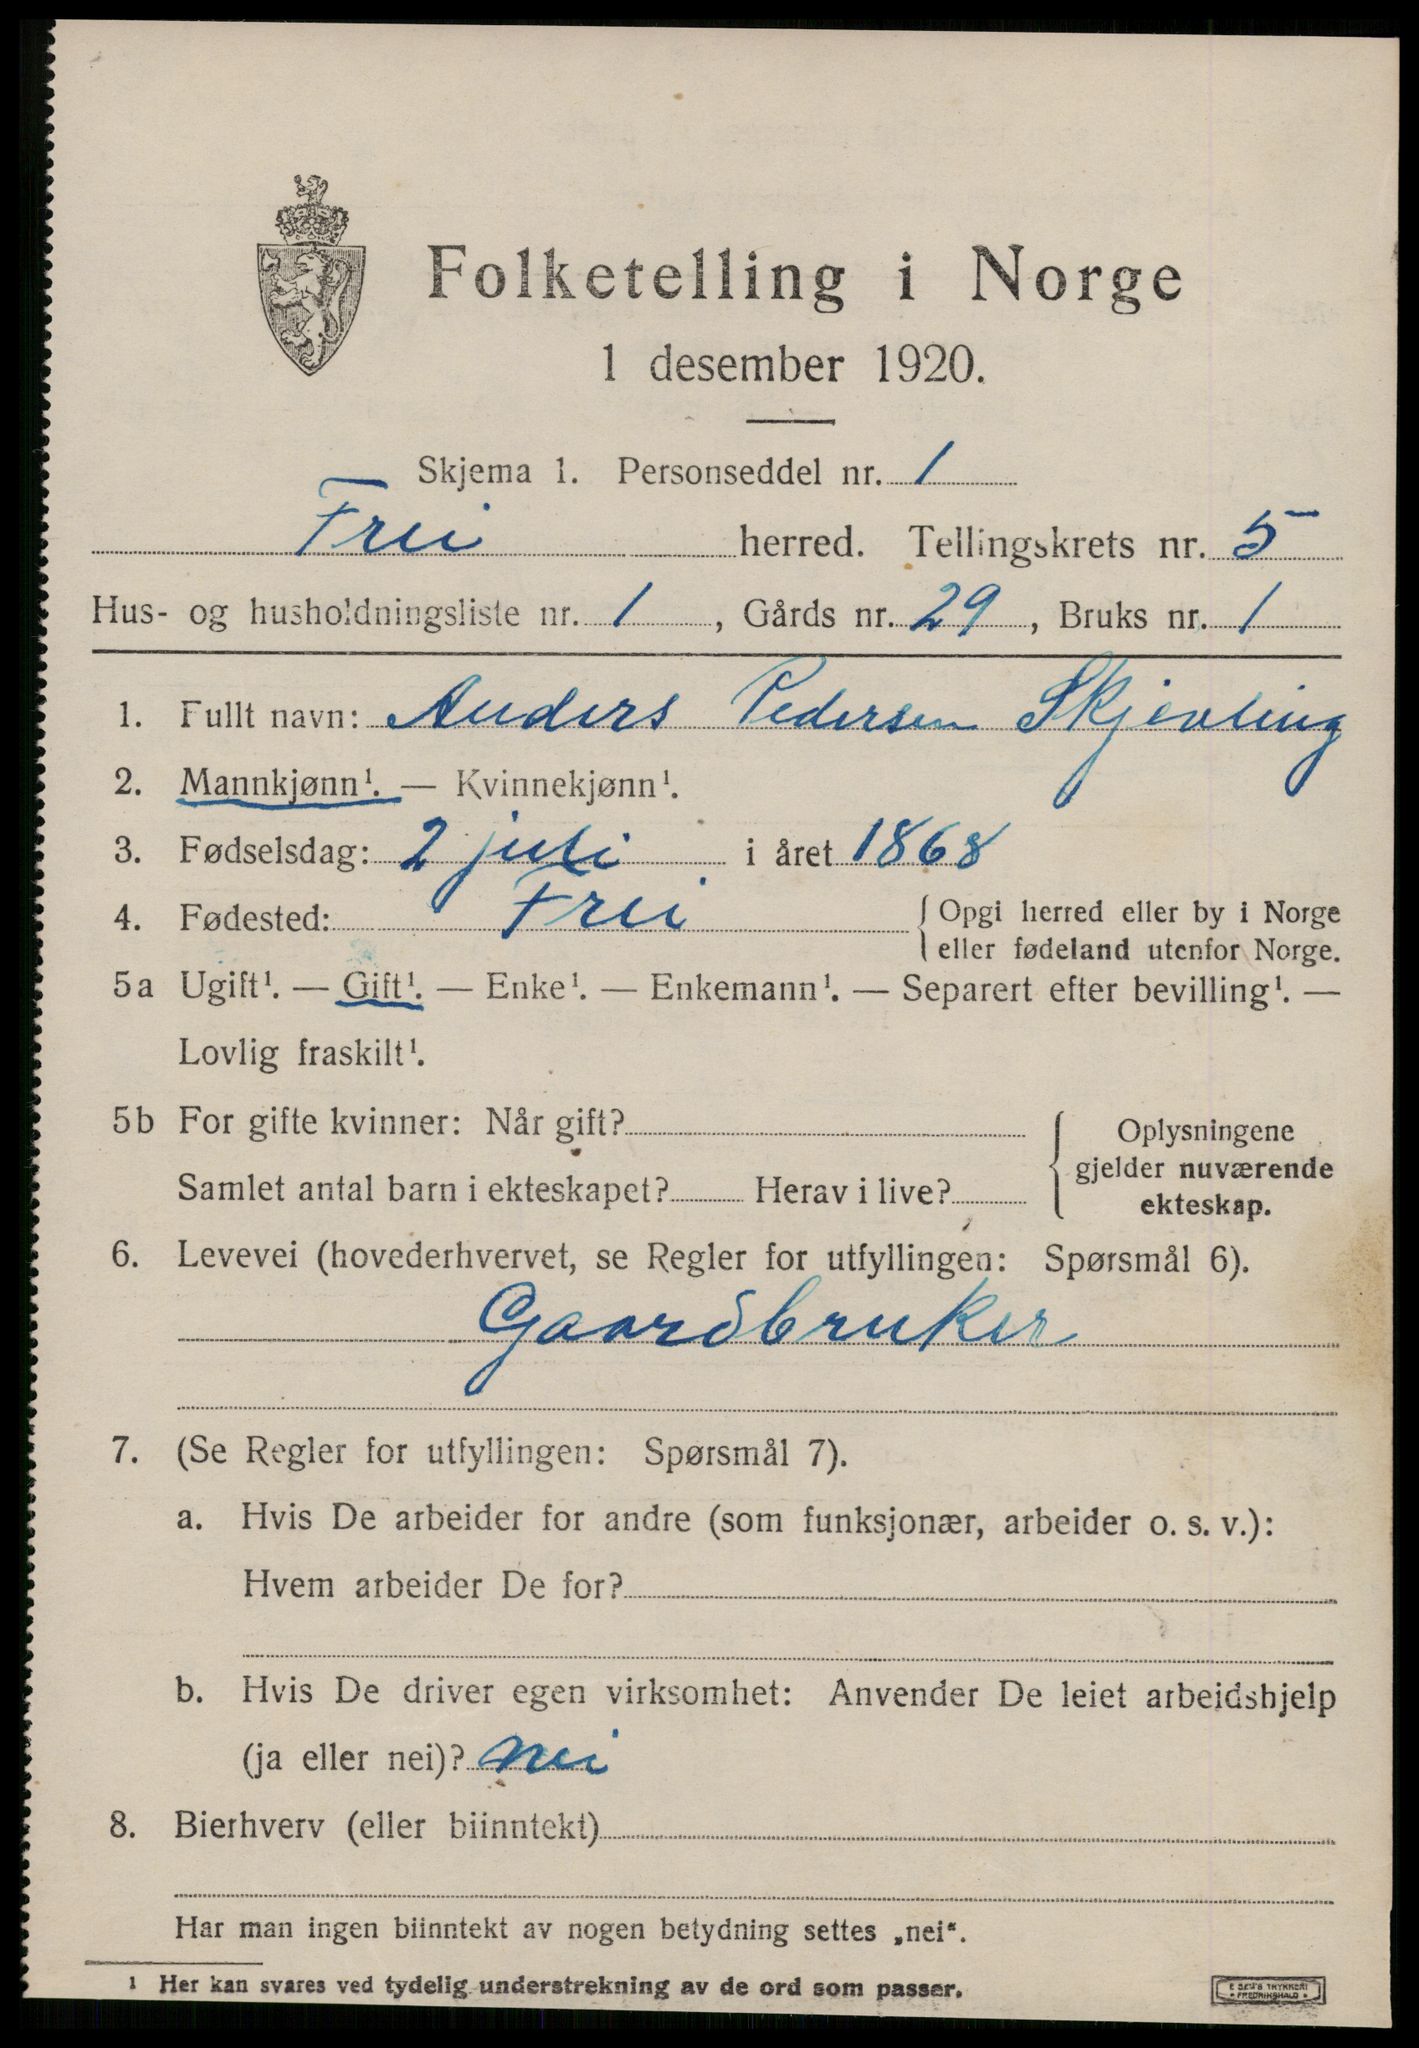 Folketelling i Norge
1 desember 1920.
Skjema 1. Personseddel nr. 1
Frei herred. Tellingskrets nr. 5
Hus- og husholdningsliste nr. 1, Gårds nr. 29, Bruks nr. 1
1. Fullt navn: Anders Pedersen Skjevling
2. Mannkjønn¹. — Kvinnekjønn¹.
3. Fødselsdag: 2 juli i året 1868
4. Fødested: Frei { Opgi herred eller by i Norge
eller fødeland utenfor Norge.
5a Ugift¹. — Gift¹. — Enke¹. — Enkemann¹. — Separert efter bevilling¹. —
Lovlig fraskilt¹.
5b For gifte kvinner: Når gift? { Oplysningene
gjelder nuværende
Samlet antal barn i ekteskapet? Herav i live?
ekteskap.
6. Levevei (hovederhvervet, se Regler for utfyllingen: Spørsmål 6).
Gaardbruker
7. (Se Regler for utfyllingen: Spørsmål 7).
a. Hvis De arbeider for andre (som funksjonær, arbeider o. s. v.):
Hvem arbeider De for?
b. Hvis De driver egen virksomhet: Anvender De leiet arbeidshjelp
(ja eller nei)? nei
8. Bierhverv (eller biinntekt)
Har man ingen biinntekt av nogen betydning settes „nei“.
¹ Her kan svares ved tydelig understrekning av de ord som passer.
E SEM'S TRYKKERI
FREDRIKSHALD